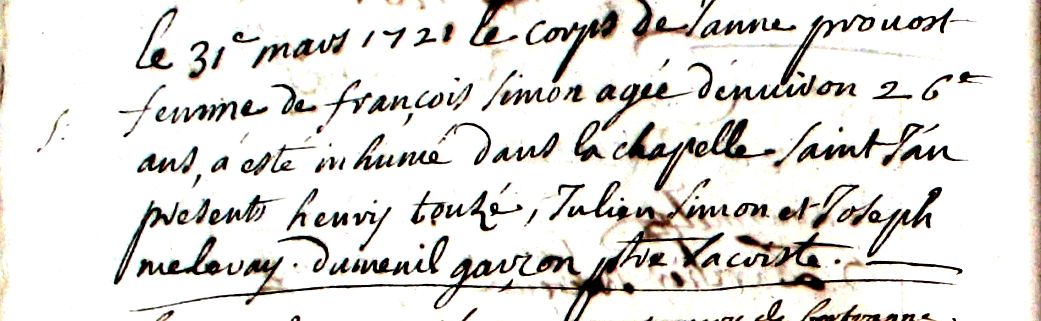 le 31e mars 1721 le corps de Janne provost
S. femme de françois simon agée dénuiron 26e
ans, a esté inhumé dans la chapelle saint Ján
presents henry touzé, Julien simon et Joseph
melovay. dumenil garzon ptre sacriste.